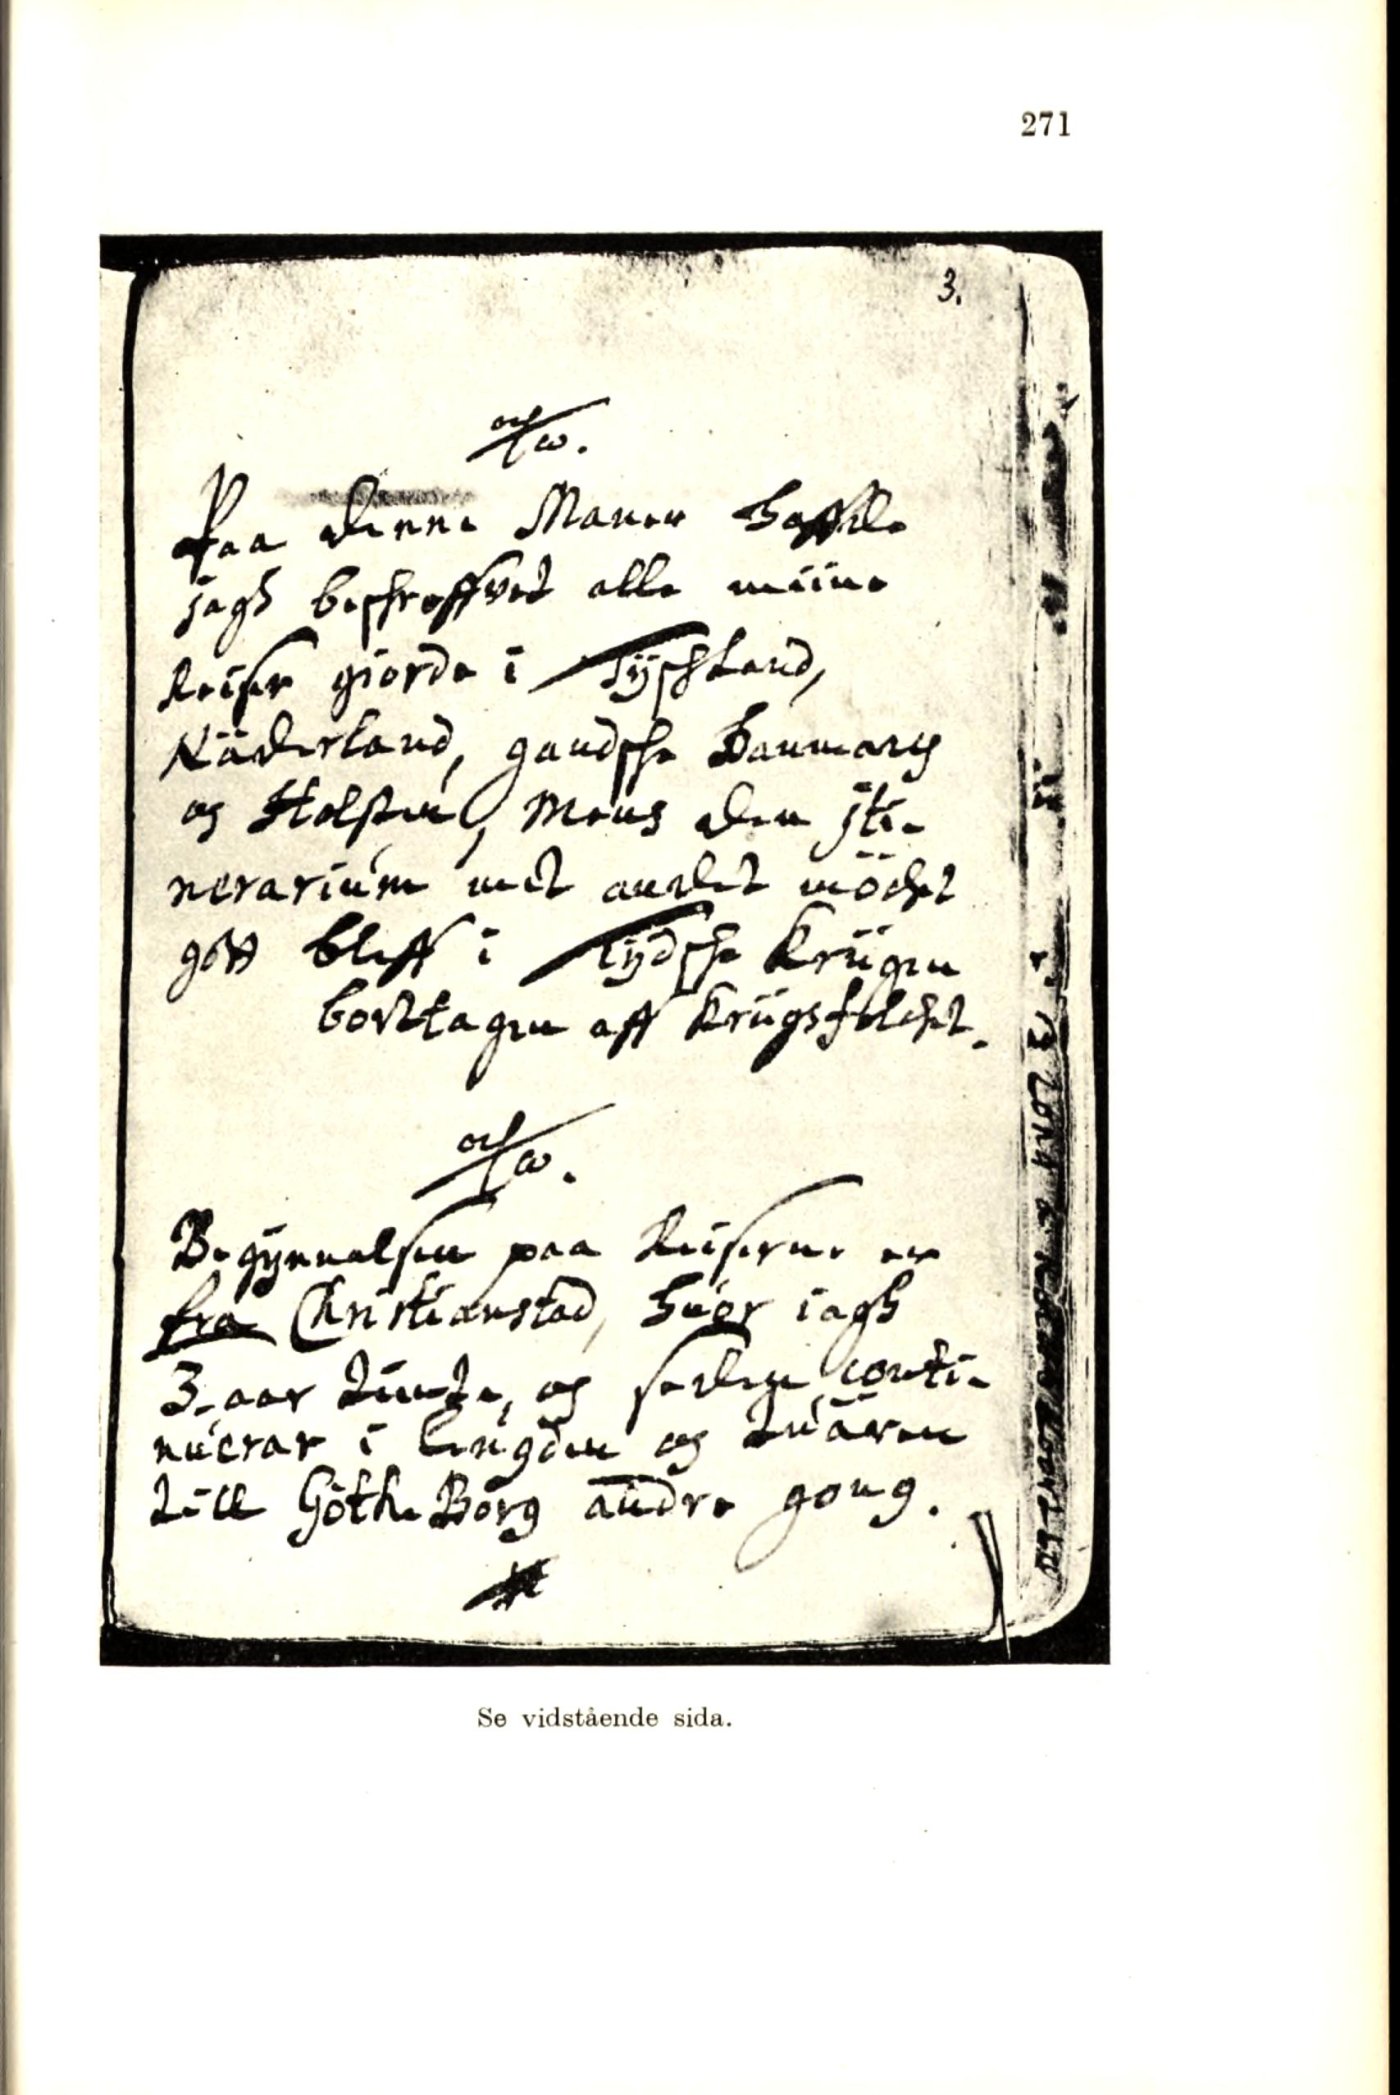 271
3.
α/ω.
Paa denne Maneer haffde
jagh beskreffvet alle miine
Reiser giorde i Tÿskland,
Näderland, gandske Danmarck
og Holsten, Mens den jti-
nerarium met andet möcket
gott bleff i Tÿdske Kriigen
borttagen aff Kriigsfolcket.
α/ω.
Begÿnnelsen paa Reiserne er
fra Christianstad, huor iagh
3. aar tiente, og seden conti-
nuerar i lengden og tuären
till Götheborg andre gong.
Se vidstående sida.